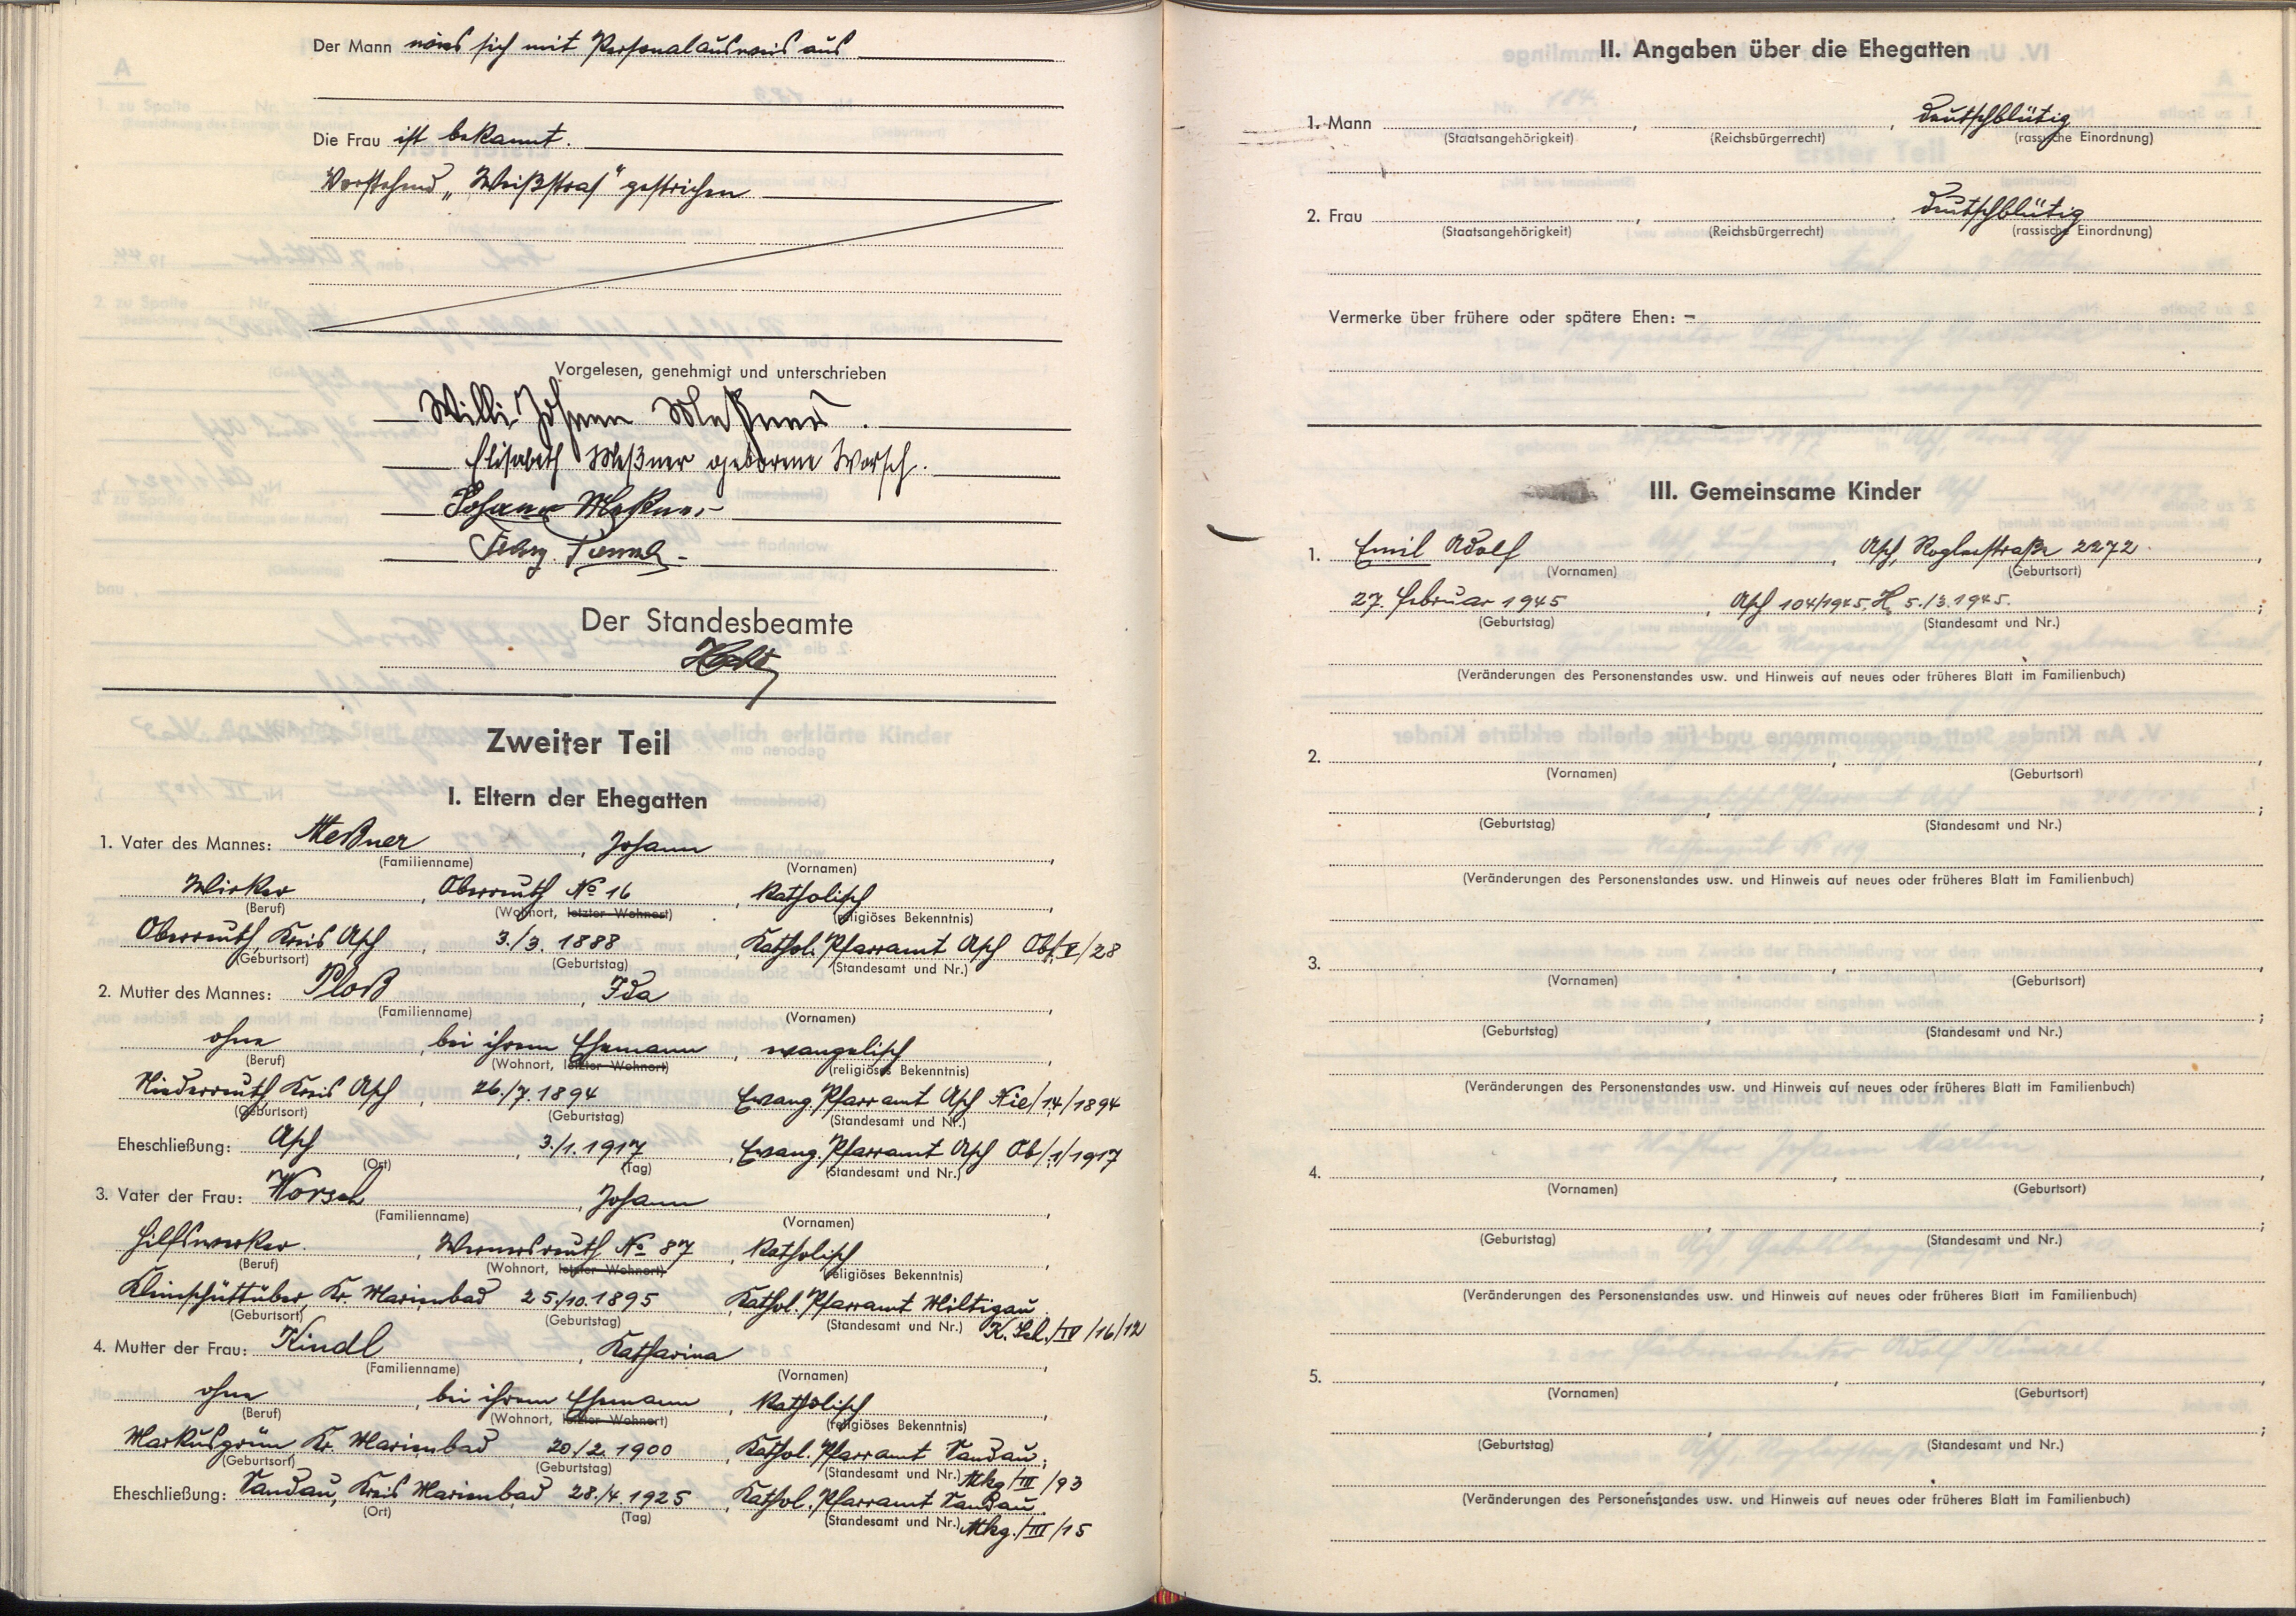 Der Mann wies sich mit Personalausweis aus
Die Frau ist bekannt.
Vorstehend „Weißstraf" gestrichen
Vorgelesen, genehmigt und unterschrieben
Willi Johann Meßner.
Elisabeth Meßner geborene Worsch.
Johann Meßner
Der Standesbeamte
Zweiter Teil
I. Eltern der Ehegatten
1. Vater des Mannes: Meßner, Johann
(Familienname) (Vornamen)
Wirker, Oberreuth № 16, katholisch,
(Beruf) (Wohnort, letzter Wohnort) (religiöses Bekenntnis)
Oberreuth, Kreis Asch, 3./3. 1888, Kathol. Pfarramt Asch Ob/V/28
(Geburtsort) (Geburtstag) (Standesamt und Nr.)
2. Mutter des Mannes: Ploß, Ida,
(Familienname) (Vornamen)
ohne, bei ihrem Ehemann, evangelisch,
(Beruf) (Wohnort, letzter Wohnort) (religiöses Bekenntnis)
Niederreuth, Kreis Asch, 26./7. 1894 Evang. Pfarramt Asch Nie/14/1894
(Geburtsort) (Geburtstag) (Standesamt und Nr.)
Eheschließung: Asch, 3./1. 1917, Evang. Pfarramt Asch Ob/1/1917
(Ort) (Tag) (Standesamt und Nr.)
3. Vater der Frau: Worsch, Johann,
(Familienname) (Vornamen)
Hilfswerker, Wernersreuth № 87, katholisch,
(Beruf) (Wohnort, letzter Wohnort) (religiöses Bekenntnis)
Kleinschüttüber, Kr. Marienbad 25./10. 1895 Kathol. Pfarramt Miltigau
(Geburtsort) (Geburtstag) (Standesamt und Nr.) K. Sch./IV/16/12
4. Mutter der Frau: Kindl, Katharina,
(Familienname) (Vornamen)
ohne, bei ihrem Ehemann, katholisch,
(Beruf) (Wohnort, letzter Wohnort) (religiöses Bekenntnis)
Markusgrün, Kr. Marienbad 20./2. 1900, Kathol. Pfarramt Sandau,
(Geburtsort) (Geburtstag) (Standesamt und Nr.) Mkg/III/93
Eheschließung: Sandau, Kreis Marienbad 28./4. 1925, Kathol. Pfarramt Sandau
(Ort) (Tag) (Standesamt und Nr.) Mkg./III/15
II. Angaben über die Ehegatten
1. Mann , , deutschblütig
(Staatsangehörigkeit) (Reichsbürgerrecht) (rassische Einordnung)
2. Frau , , deutschblütig
(Staatsangehörigkeit) (Reichsbürgerrecht) (rassische Einordnung)
Vermerke über frühere oder spätere Ehen: -
III. Gemeinsame Kinder
1. Emil Adolf, Asch, Roglerstraße 2272,
(Vornamen) (Geburtsort)
27. Februar 1945, Asch 104/1945. H. 5./3. 1945.;
(Geburtstag) (Standesamt und Nr.)
(Veränderungen des Personenstandes usw. und Hinweis auf neues oder früheres Blatt im Familienbuch)
2. , ,
(Vornamen) (Geburtsort)
, ;
(Geburtstag) (Standesamt und Nr.)
(Veränderungen des Personenstandes usw. und Hinweis auf neues oder früheres Blatt im Familienbuch)
3. , ,
(Vornamen) (Geburtsort)
, ;
(Geburtstag) (Standesamt und Nr.)
(Veränderungen des Personenstandes usw. und Hinweis auf neues oder früheres Blatt im Familienbuch)
4. , ,
(Vornamen) (Geburtsort)
, ;
(Geburtstag) (Standesamt und Nr.)
(Veränderungen des Personenstandes usw. und Hinweis auf neues oder früheres Blatt im Familienbuch)
5. , ,
(Vornamen) (Geburtsort)
, ;
(Geburtstag) (Standesamt und Nr.)
(Veränderungen des Personenstandes usw. und Hinweis auf neues oder früheres Blatt im Familienbuch)